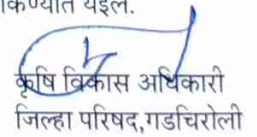 किण्यात येइल.
कृषि विकास अधिकारी
जिल्हा परिषद,गडचिरोली